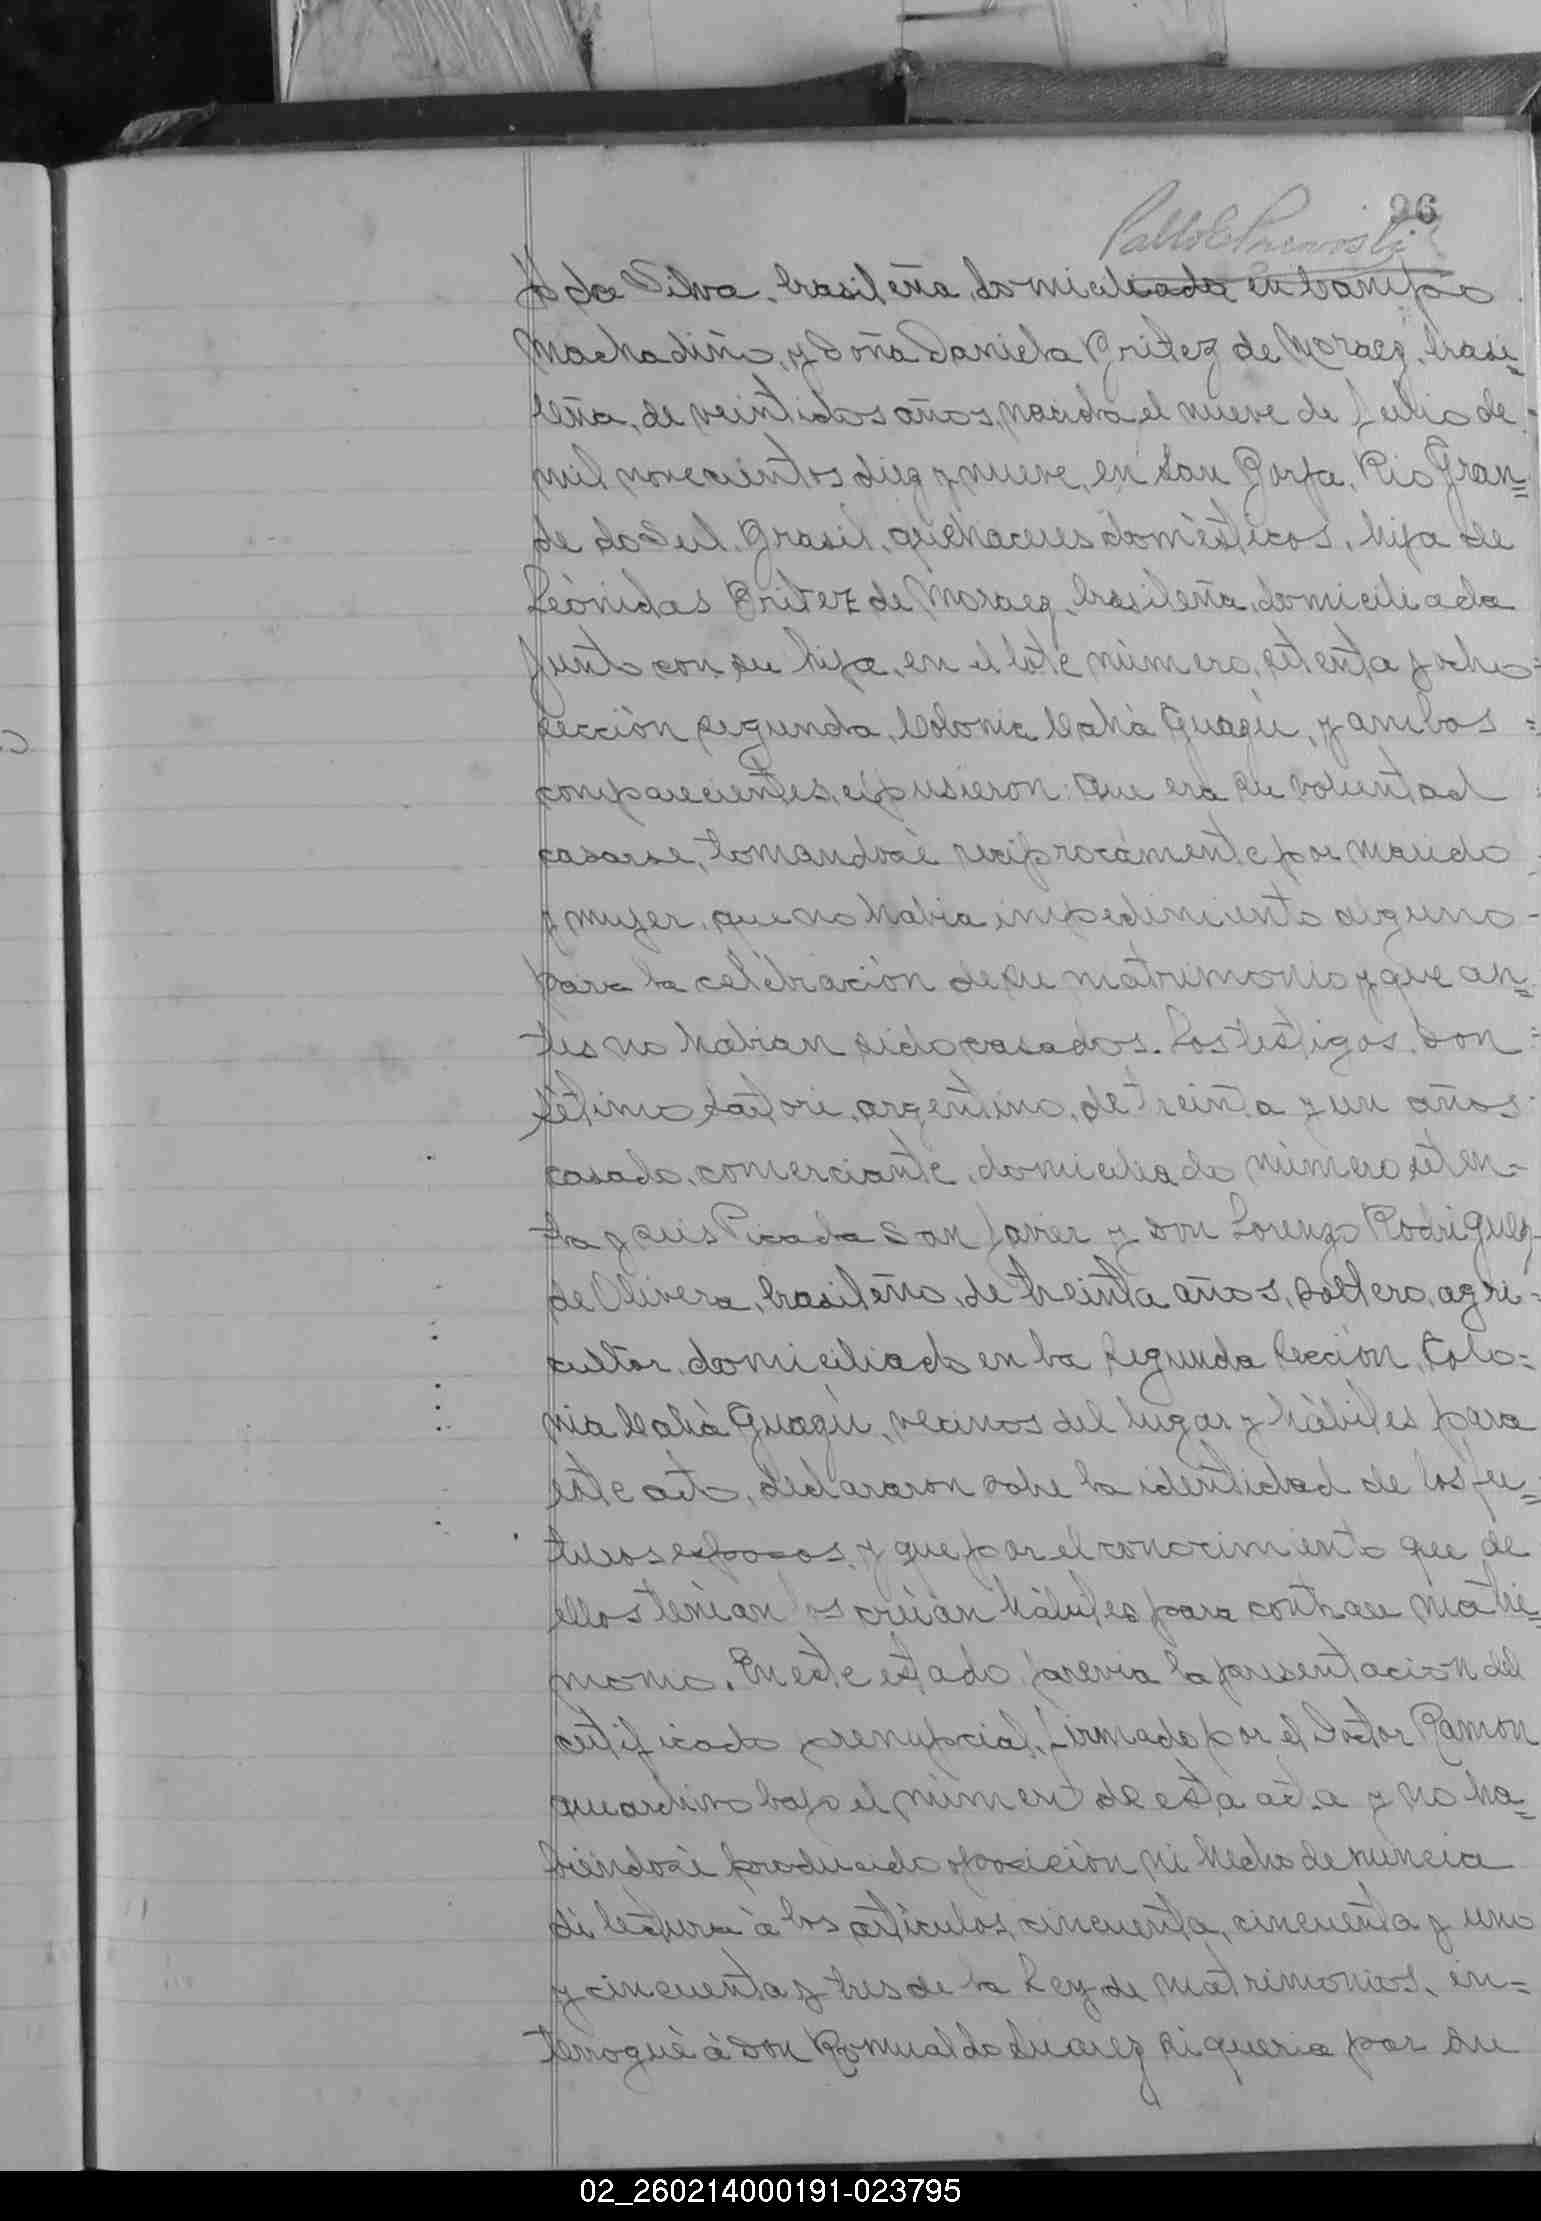 26
Pablo E Prevosti
da Silva, brasileña, domiciliada en Campo
Machadiño, y doña Daniela Britez de Moraez, brasi=
leña, de veintidos años, nacida el nueve de Julio de
mil novecientos diez y nueve, en San Borja, Rio Gran=
de do Sul, Brasil, quehaceres domésticos, hija de
Leónidas Britez de Moraez, brasileña, domiciliada
junto con su hija, en el lote número, setenta y ocho
sección segunda, Colonia Cahá Guazú, y ambos
comparecientes, expusieron: Que era su voluntad
casarse, tomandosé reciprocámente por marido
y mujer, que no habia impedimiento alguno
para la celébración de su matrimonio y que an=
tes no habian sido casados. Los testigos, don
Sétimo Sartori, argentino, de treinta y un años
casado, comerciante, domiciliado número seten-
ta y seis Picada San Javier y Don Lorenzo Rodriguez
de Olivera, brasileño, de treinta años, soltero, agri=
cultor, domiciliado en la segunda sección, Colo=
nia Cahá Guazú, vecinos del lugar y hábiles para
este acto, declararon sobre la identidad de los fu=
turos esposos, y que por el conocimiento que de
ellos tenian los créian hábiles para contraer matri=
monio. En este estado, previa la presentación del
certificado prenupcial, firmado por el Doctor Ramon
que archivo bajo el número de esta acta y no ha=
biéndosé producido oposición, ni hecho denuncia
di lectura á los artículos, cincuenta, cincuenta y uno
y cincuenta y tres de la Ley de Matrimonios, in=
terrogué á Don Romualdo Suarez si queria por su
02_260214000191-023795